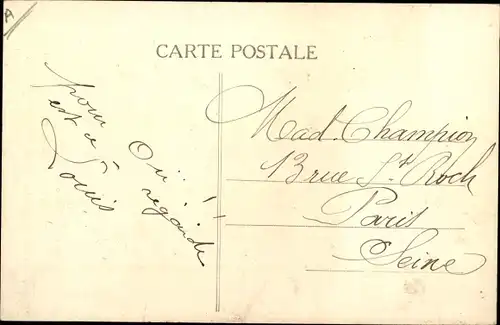 CARTE POSTALE
pour
est à
Louis
Où
regarde
Mad. Champion
13 rue St. Roch
Paris
Seine